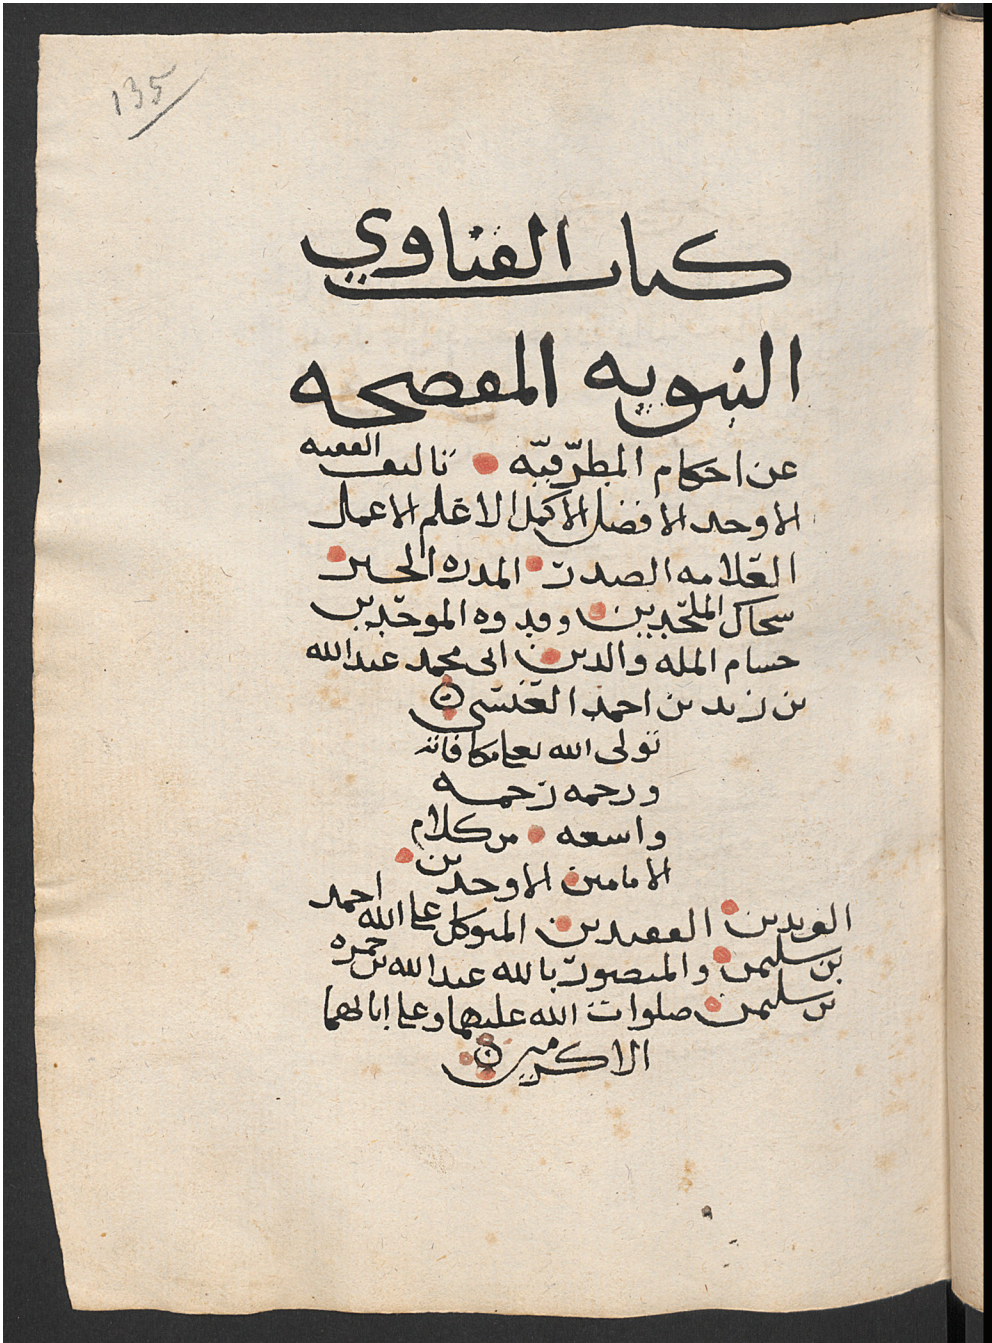 135
كتاب الفتاوي
النبويه المفصحه
عن احكام المطرّفيّه تاليف الفقيه
الاوحد الافضل الاكمل الاعلم الاعمال
العلامه الصدر المدره الحبر
سحاك الملحّدين وقدوه الموحّدين
حسام المله والدين ابى محمد عبدالله
بن زيد بن احمد العنسي
تولى الله تعلى مكافاته
ورحمه رحمه
واسعه من كلام
الامامين الاوحدين
الفريدين العميدين المتوكل على الله احمد
بن سليمن والمنصور بالله عبدالله بن حمزه
بن سليمن صلوات الله عليهما وعلى ابائهما
الاكرمين